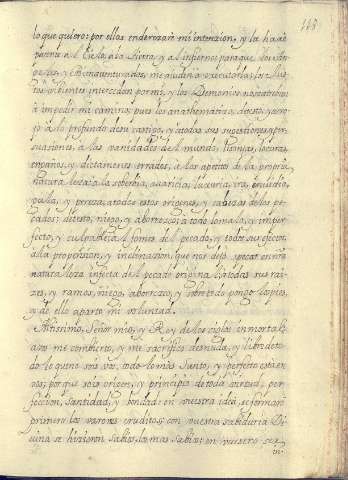 148
lo que quiero; por ellos enderezare mi intencion, y la hare
patente al Cielo, a la tierra, y al infierno; para que los An-
geles, y Bienaventurados, me aiuden a executarla; los Jus-
tos vibientes intercedan por mi, y los Demonios no se atreban
a impedir mi camino; pues los anathematizo, detesto, y arro-
jo a lo profundo de su castigo, y a todas sus sugestiones, y per-
suasiones, a las vanidades del mundo, locuras,
engaños, y dictamenes errados, a los apetitos de la propria
naturaleza; a la soberbia, avaricia, luxuria, ira, embidia,
gula, y pereza; a todos estos origenes, y cabezas de los pe-
cados; detesto, niego, y aborrezco; a todo lo malo, y imper-
fecto, y culpable; al fomes del pecado, y todos sus efectos,
a la propension, y inclinacion, que nos dejò, y pecar en nra
naturaleza infecta del pecado original; a todas sus rai-
zes, y ramos, niego, aborrezco, y sobre todo pongo los pies,
y de ello aparto mi voluntad.
Altissimo, Señor mio, y Rey de los siglos inmortal;
a vos me combierto, y me sacrifico desnuda, y libre de to-
do lo que no sois vos; todo lo mas Santo, y perfecto està en
vos; por que sois origen, y principio de toda virtud, per-
feccion, santidad, y bondad: en vuestra idea, se formaron
primero los varones eruditos; con vuestra sabiduria Di-
vina se hizieron sabios, los mas sabios; en vuestro ser
in-